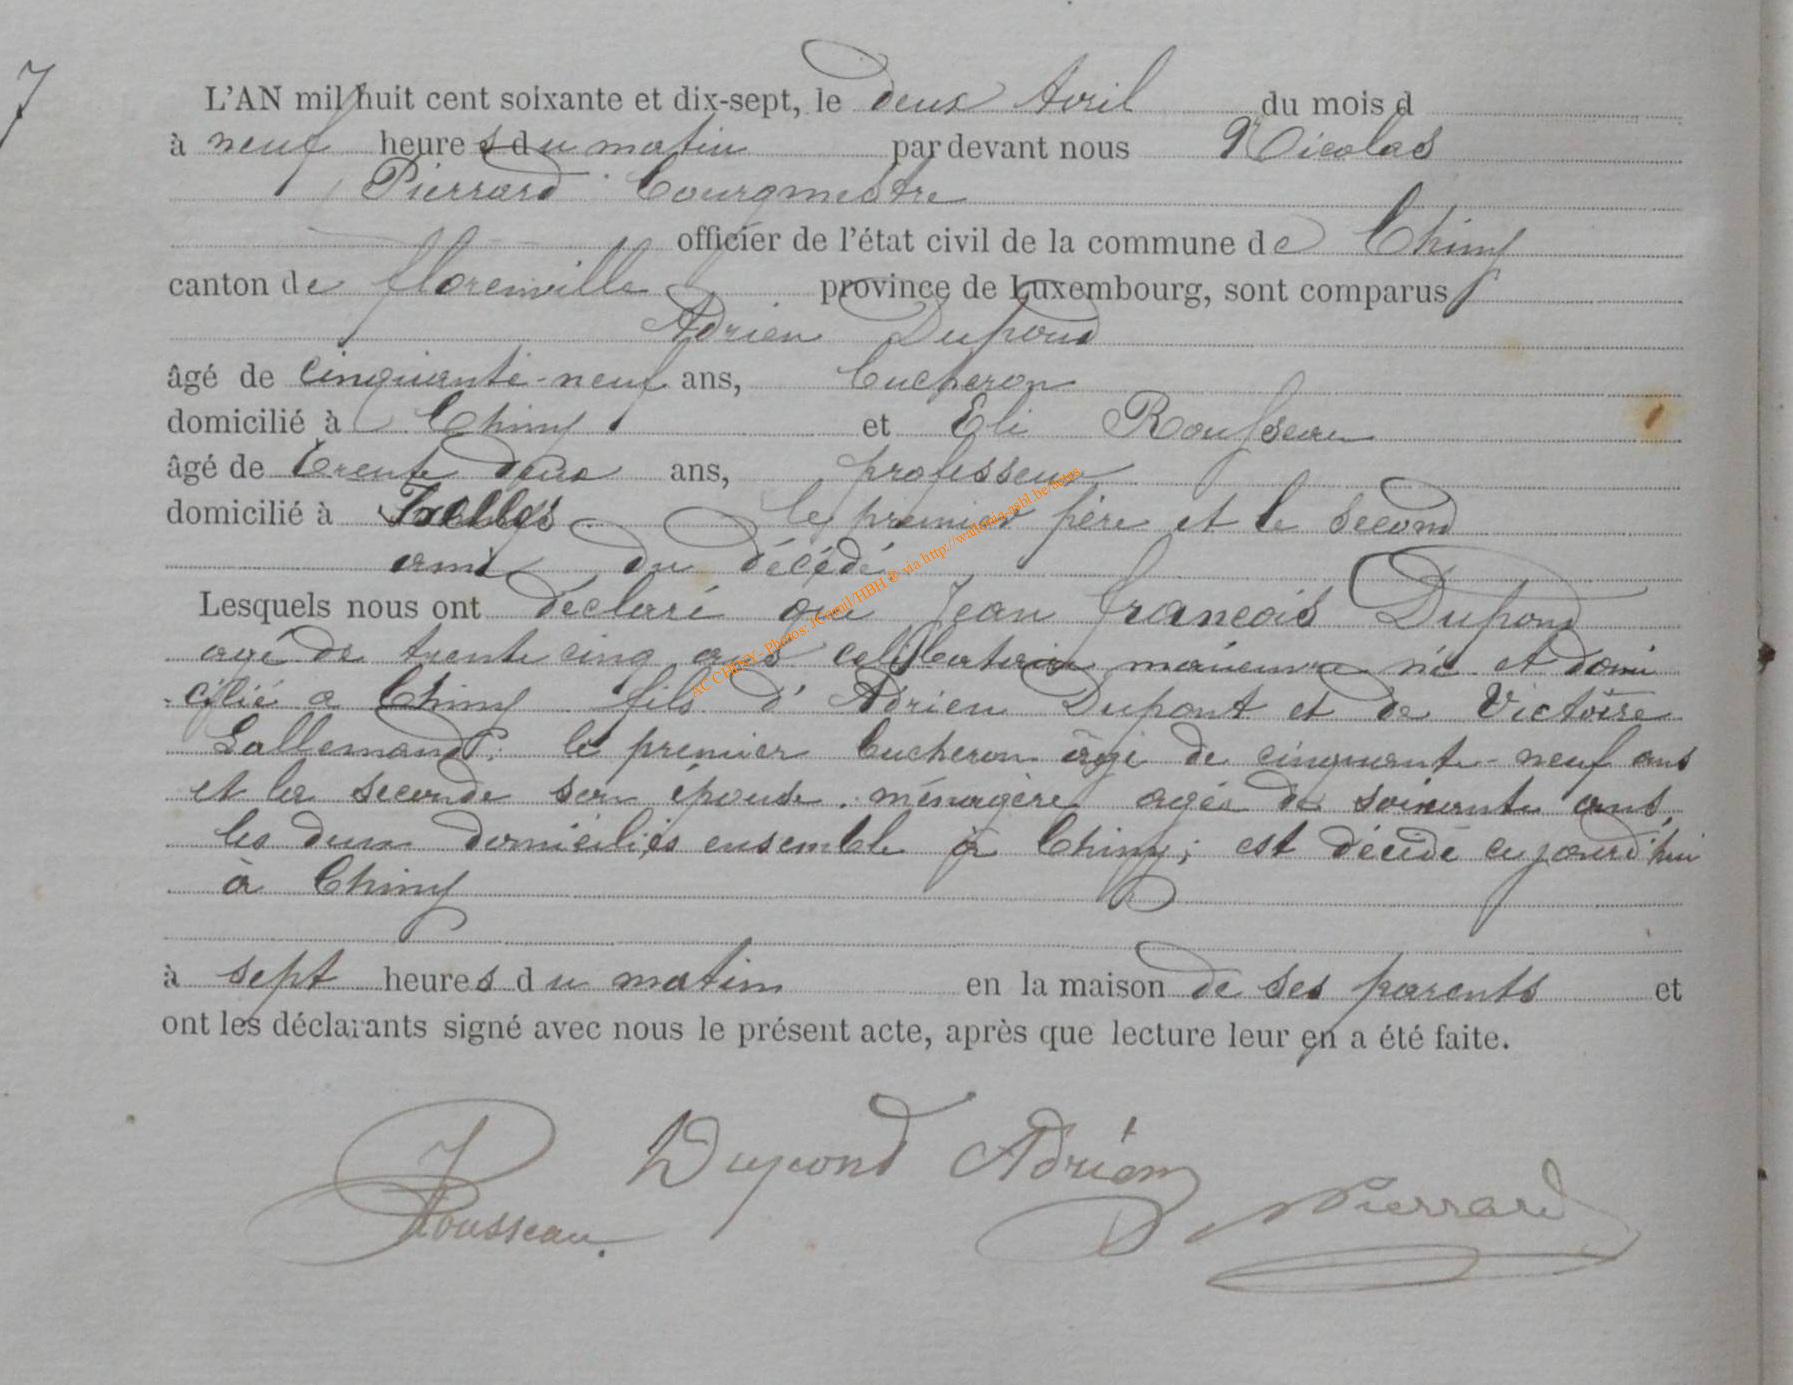 7
L'AN mil huit cent soixante et dix-sept, le deux Avril du mois d
à neuf heures du matin par devant nous Nicolas
Pierrard bourgmestre
officier de l'état civil de la commune de Chiny
canton de florenville province de Luxembourg, sont comparus
Adrien Dupond
âgé de cinquante-neuf ans, bucheron
domicilié à Chiny et Eli Rousseau
âgé de trente deux ans, professeur
domicilié à Ixelles le premier père et le second
ami du décédé
Lesquels nous ont déclaré que Jean françois Dupond
agé de trente cinq ans celibataire manœuvre né et domi
-cilié a Chiny fils d'Adrien Dupont et de Victoire
Lallemand: le premier bucheron âgé de cinquante-neuf ans
et la seconde son épouse, ménagère agée de soixante ans,
les deux domiciliés ensemble à Chiny; est décédé aujourd'hui
à Chiny
à sept heures du matin en la maison de ses parents et
ont les déclarants signé avec nous le présent acte, après que lecture leur en a été faite.
Rousseau. Dupond Adrien Pierrard